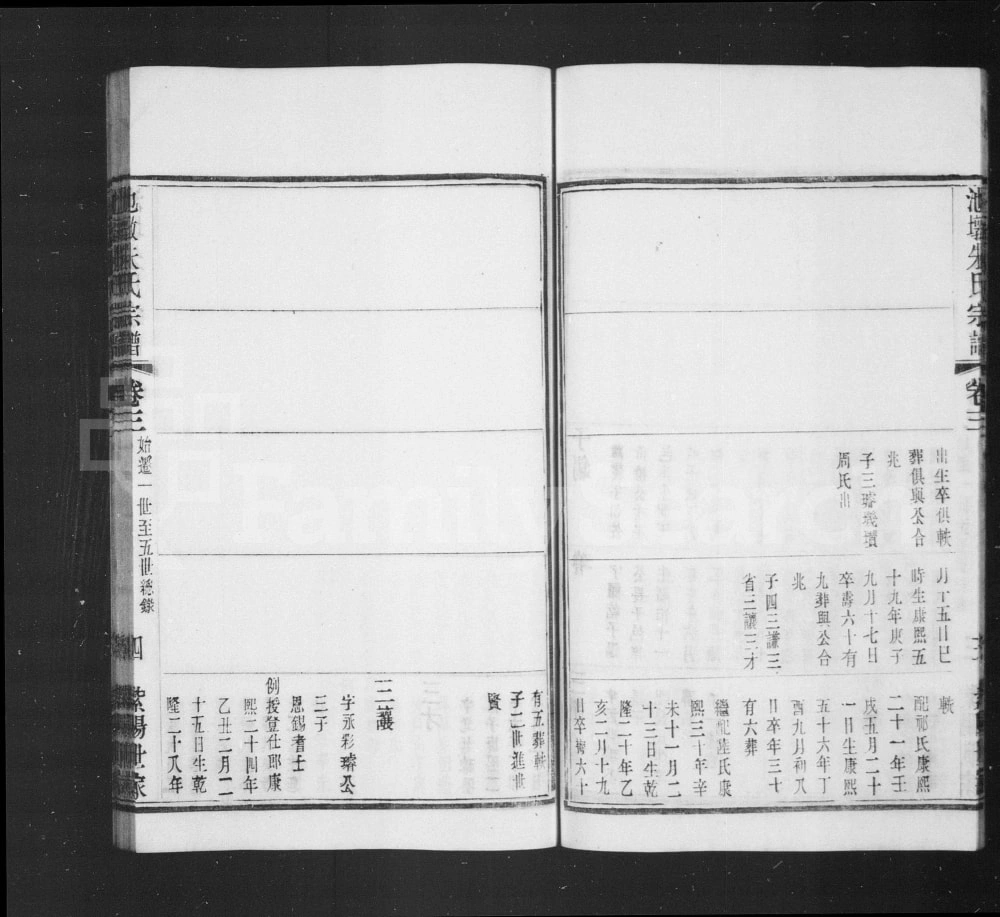 池壇朱氏宗譜
卷三
出生卒俱軼
葬俱與公合
兆
子三璿璣壇
周氏出
月十五日巳
時生康熙五
十九年庚子
九月十七日
卒壽六十有
九葬與公合
兆
子四三謙三
省三讓三才
軼
配祁氏康熙
二十一年壬
戌五月二十
一日生康熙
五十六年丁
酉九月初八
日卒年三十
有六葬
繼配陸氏康
熙三十年辛
未十一月二
十三日生乾
隆二十年乙
亥二月十九
日卒壽六十
有五葬軼
子二世進世
賢
三讓
字永彩璿公
三子
恩錫耆士
例授登仕郎康
熙二十四年
乙丑二月二
十五日生乾
隆二十八年
池墩朱氏宗譜
卷三
始遷一世至五世總錄
四
紫陽世家